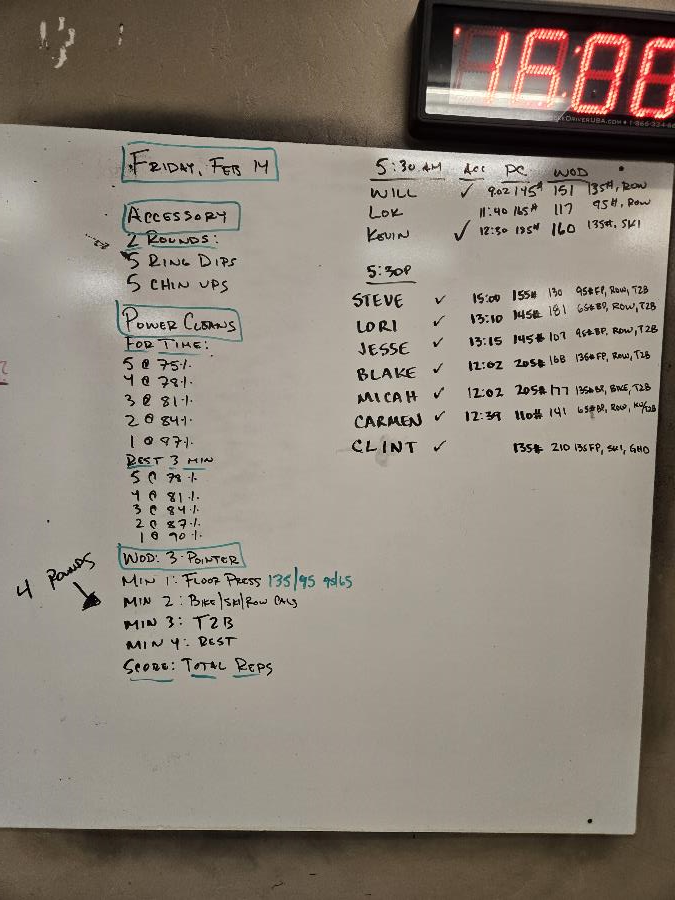 18:00
FRIDAY, FEB 14
ACCESSORY
2 ROUNDS:
5 RING DIPS
5 CHIN UPS
POWER CLEANS
FOR TIME:
5 @ 75%
4 @ 78%
3 @ 81%
2 @ 84%
1 @ 87%
REST 3 MIN
5 @ 78%
4 @ 81%
3 @ 84%
2 @ 87%
1 @ 90%
WOD: 3-POINTER
4 ROUNDS
MIN 1: FLOOR PRESS 135/95 95/65
MIN 2: BIKE/SKI/ROW CALS
MIN 3: T2B
MIN 4: REST
SCORE: TOTAL REPS
5:30 AM ACC PC WOD
WILL ✓ 9:02 145# 151 135#, ROW
LOK 11:40 165# 117 95#, ROW
KEVIN ✓ 12:30 135# 160 135#, SKI
5:30P
STEVE ✓ 15:00 155# 130 95#FP, ROW, T2B
LORI ✓ 13:10 145# 181 65#BP, ROW, T2B
JESSE ✓ 13:15 145# 107 95#BP, ROW, T2B
BLAKE ✓ 12:02 205# 168 135#FP, ROW, T2B
MICAH ✓ 12:02 205# 177 135#BP, BIKE, T2B
CARMEN ✓ 12:39 110# 141 65#BP, ROW,
CLINT ✓ 135# 210 135FP, SKI, GHD